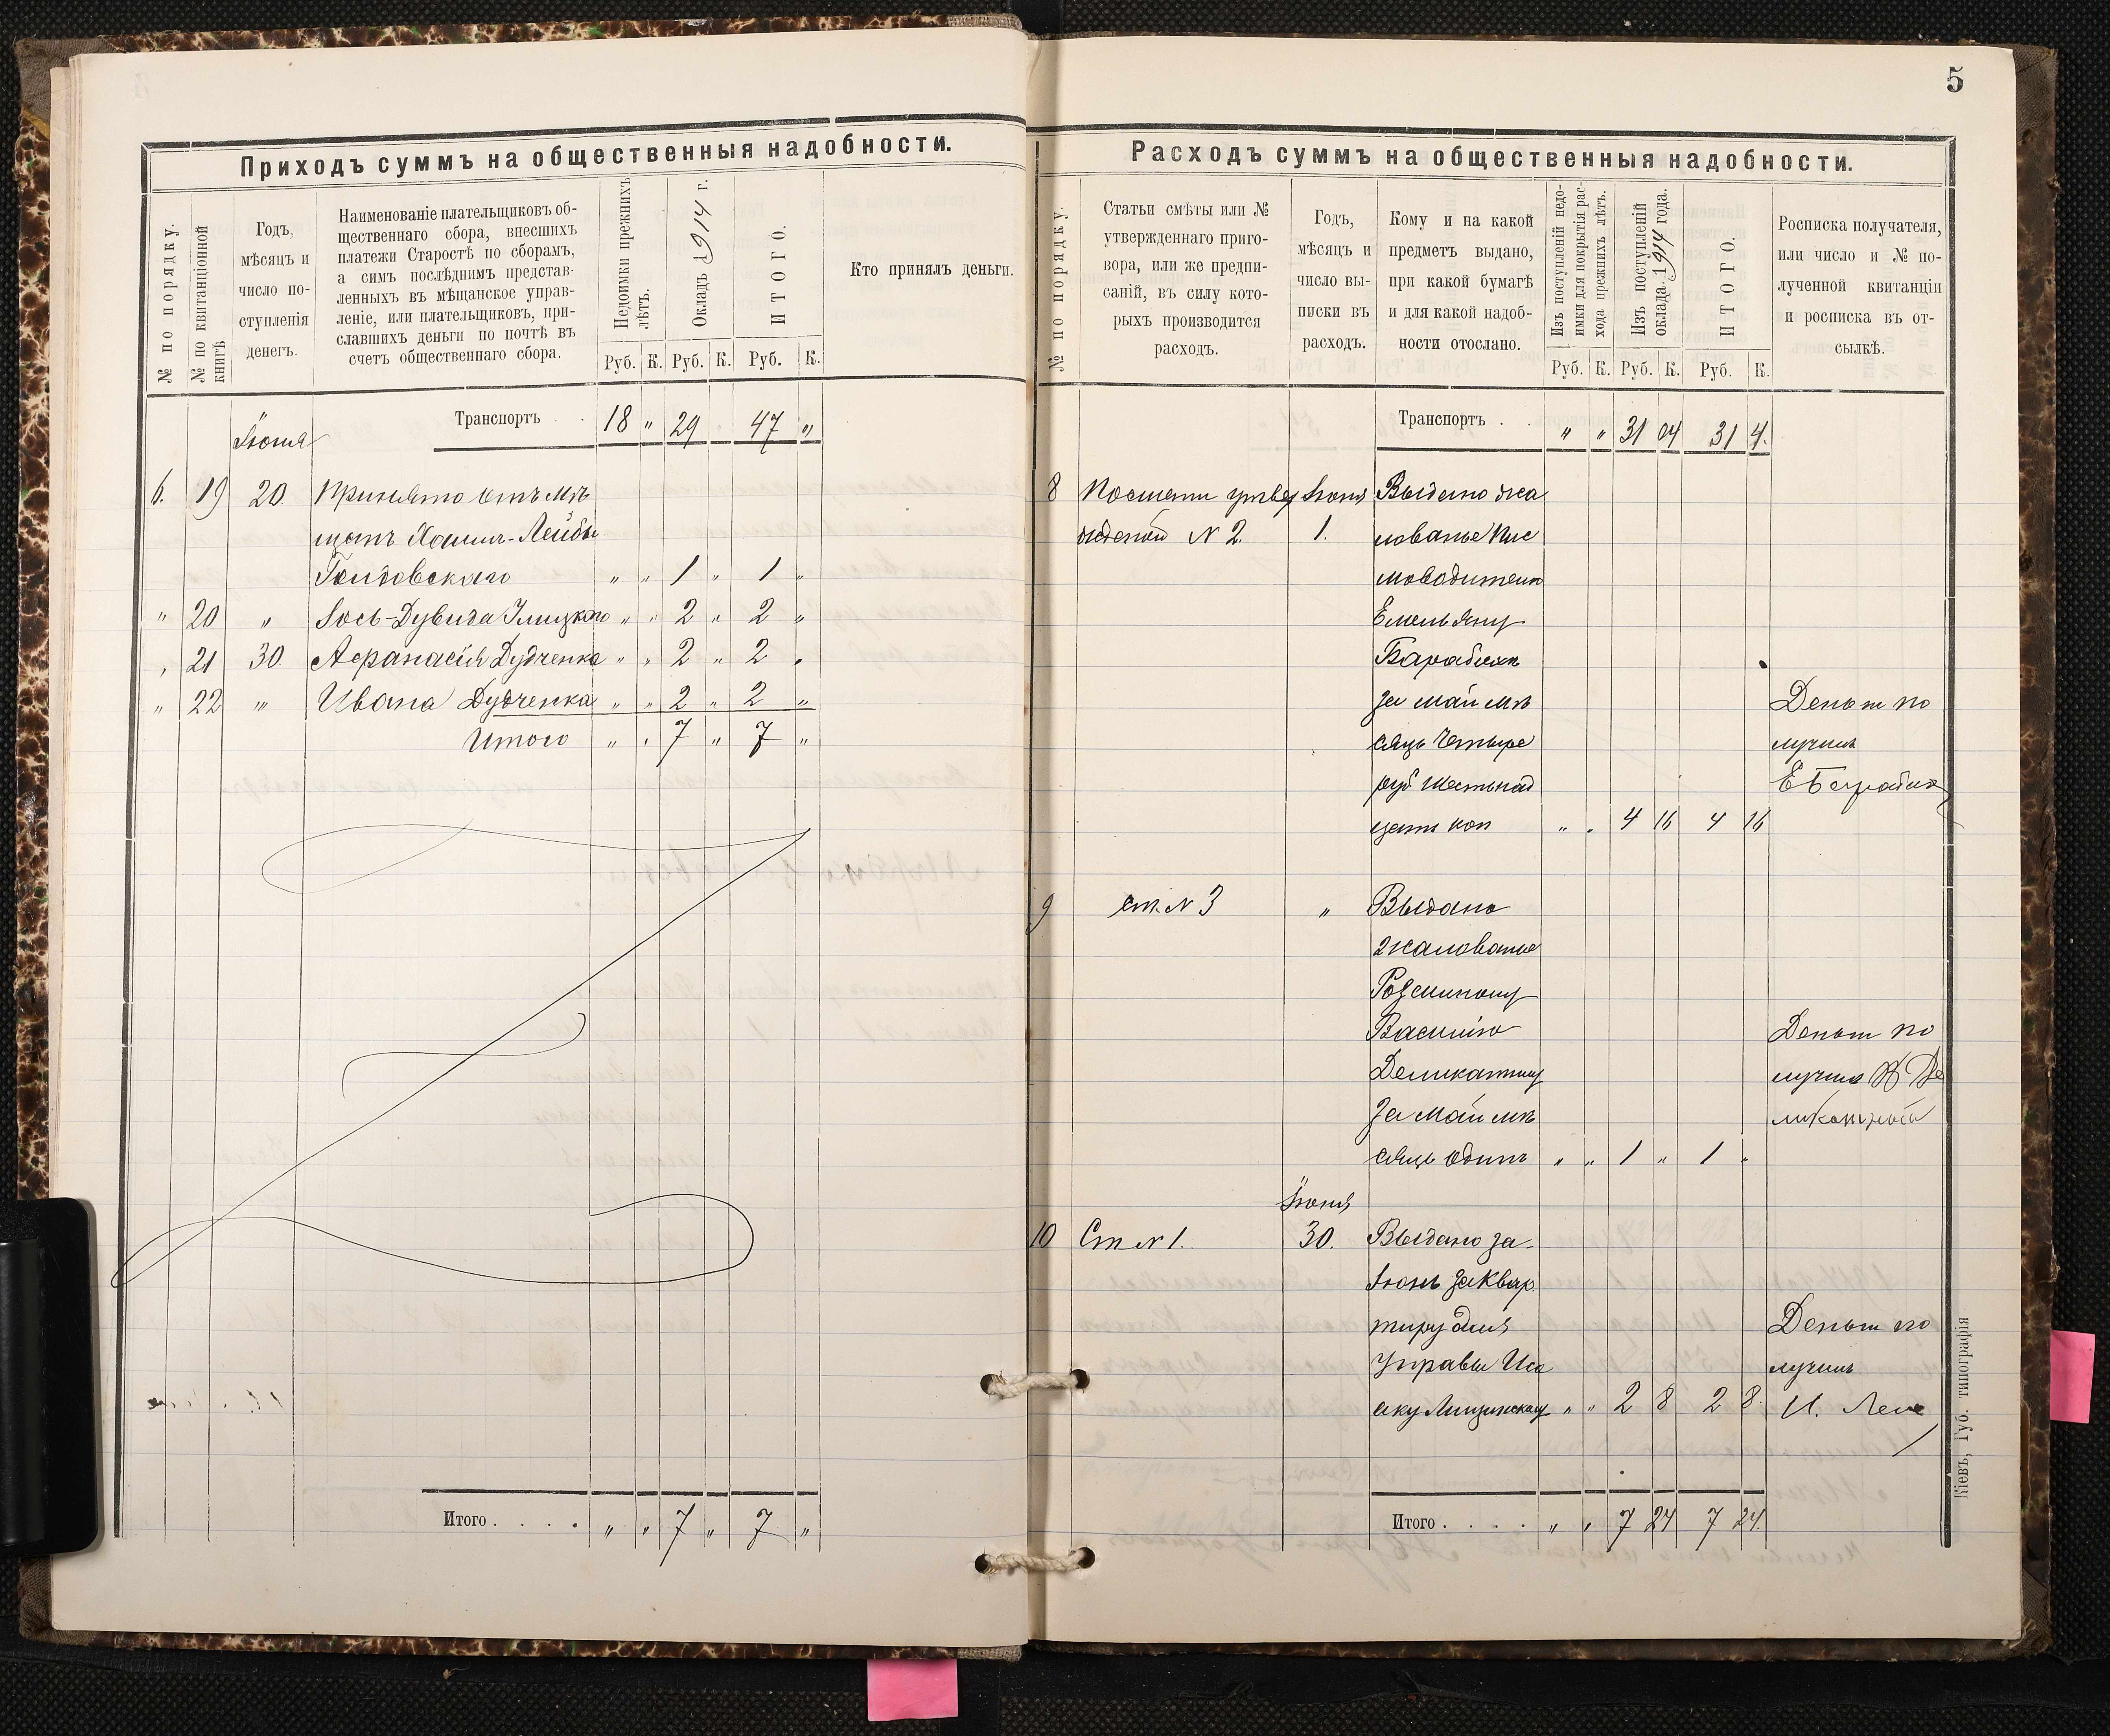 5
Приходъ суммъ на общественныя надобности.
№ по порядку.
№ по квитанціонной
книгѣ
Годъ,
мѣсяцъ и
число по-
ступленія
денегъ.
Наименованіе плательщиковъ об-
щественнаго сбора, внесшихъ
платежи Старостѣ по сборамъ,
а симъ послѣднимъ представ-
ленныхъ въ мѣщанское управ-
леніе, или плательщиковъ, при-
славшихъ деньги по почтѣ въ
счетъ общественнаго сбора.
Недоимки прежнихъ
лѣтъ.
Окладъ 1914 г.
ИТОГО.
Кто принялъ деньги.
Руб. К. Руб. К. Руб. К.
Транспортъ 18 " 29 . 47 "
Іюня
6. 19 20. Принято отъ мѣ
щанъ Хаима-Лейбы
" " 1 " 1 "
" 20 " Іось-Дувида " " 2 " 2 "
" 21 30. Афанасія Дудченка " " 2 " 2 "
" 22 " Ивана Дудченка " " 2 " 2 "
Итого " " 7 " 7 "
Итого . . . . " " 7 " 7 "
Расходъ суммъ на общественныя надобности.
№ по порядку.
Статьи смѣты или №
утвержденнаго приго-
вора, или же предпи-
саній, въ силу кото-
рыхъ производится
расходъ.
Годъ,
мѣсяцъ и
число вы-
писки въ
расходъ.
Кому и на какой
предметъ выдано,
при какой бумагѣ
и для какой надоб-
ности отослано.
Изъ поступленій недо-
имки для покрытія рас-
хода прежнихъ лѣтъ.
Изъ поступленій
оклада 1914 года.
ИТОГО.
Росписка получателя,
или число и № по-
лученной квитанціи
и росписка въ от-
сылкѣ.
Руб. К. Руб. К. Руб. К.
Транспортъ . . " " 31 04 31 4.
8 По смети утвер Іюня Выдано жа
жденой N 2. 1. лованье Пис
моводителю
Емельяну
Барабашъ
за май мѣ Деньги по
сяцъ Четыре лучилъ
руб Шестьнад
цать коп " . 4 16 4 16
9 ст. N 3 " Выдано
жалованье
Розсильному
Василію Деньги по
Деликатному лучилъ В Де
за май мѣ ликатный
сяцъ Одинъ " " 1 " 1 "
Іюня
10 Ст N 1. 30. Выдано за-
Іюнь за Квар
тиру для Деньги по
Управы Иса лучилъ
аку " " 2 8 2 8. И.
Итого . . . . " " 7 24 7 24.
Кіевъ, Губ. типографія